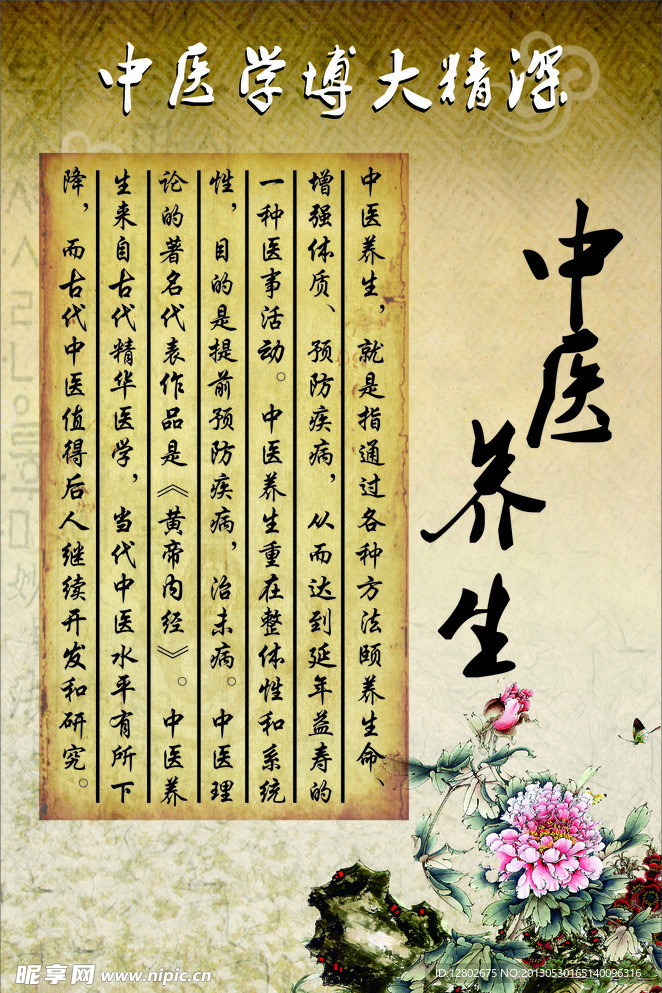 中医学博大精深
中医养生
中医养生，就是指通过各种方法颐养生命、
增强体质、预防疾病，从而达到延年益寿的
一种医事活动。中医养生重在整体性和系统
性，目的是提前预防疾病，治未病。中医理
论的著名代表作品是《黄帝内经》。中医养
生来自古代精华医学，当代中医水平有所下
降，而古代中医值得后人继续开发和研究。
昵享网 www.nipic.cn
ID:12802675 NO:20130530165140096316